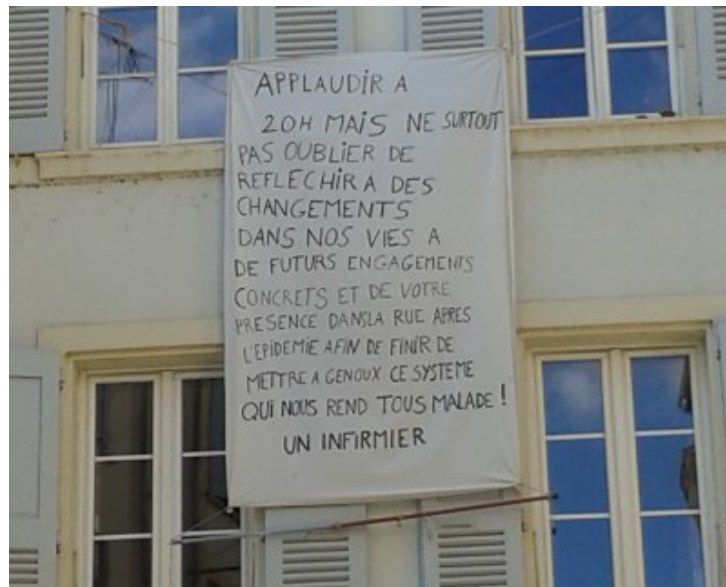 APPLAUDIR A
20H MAIS NE SURTOUT
PAS OUBLIER DE
REFLECHIR A DES
CHANGEMENTS
DANS NOS VIES A
DE FUTURS ENGAGEMENTS
CONCRETS ET DE VOTRE
PRESENCE DANSLA RUE APRES
L'EPIDEMIE AFIN DE FINIR DE
METTRE A GENOUX CE SYSTEME
QUI NOUS REND TOUS MALADE !
UN INFIRMIER